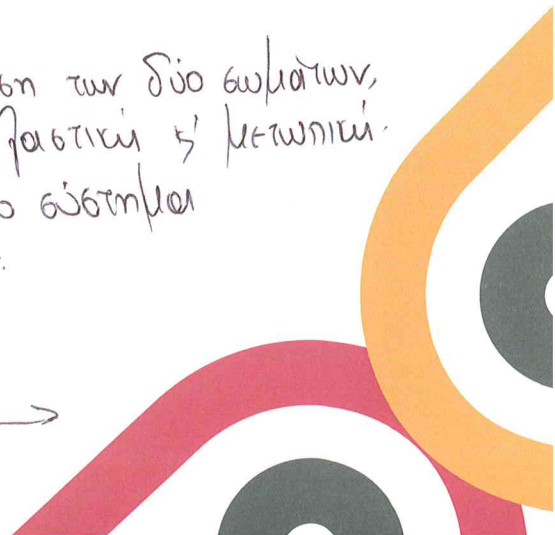 ση των δύο σωμάτων,
λαστική κ' μετωπική.
ο σύστημα